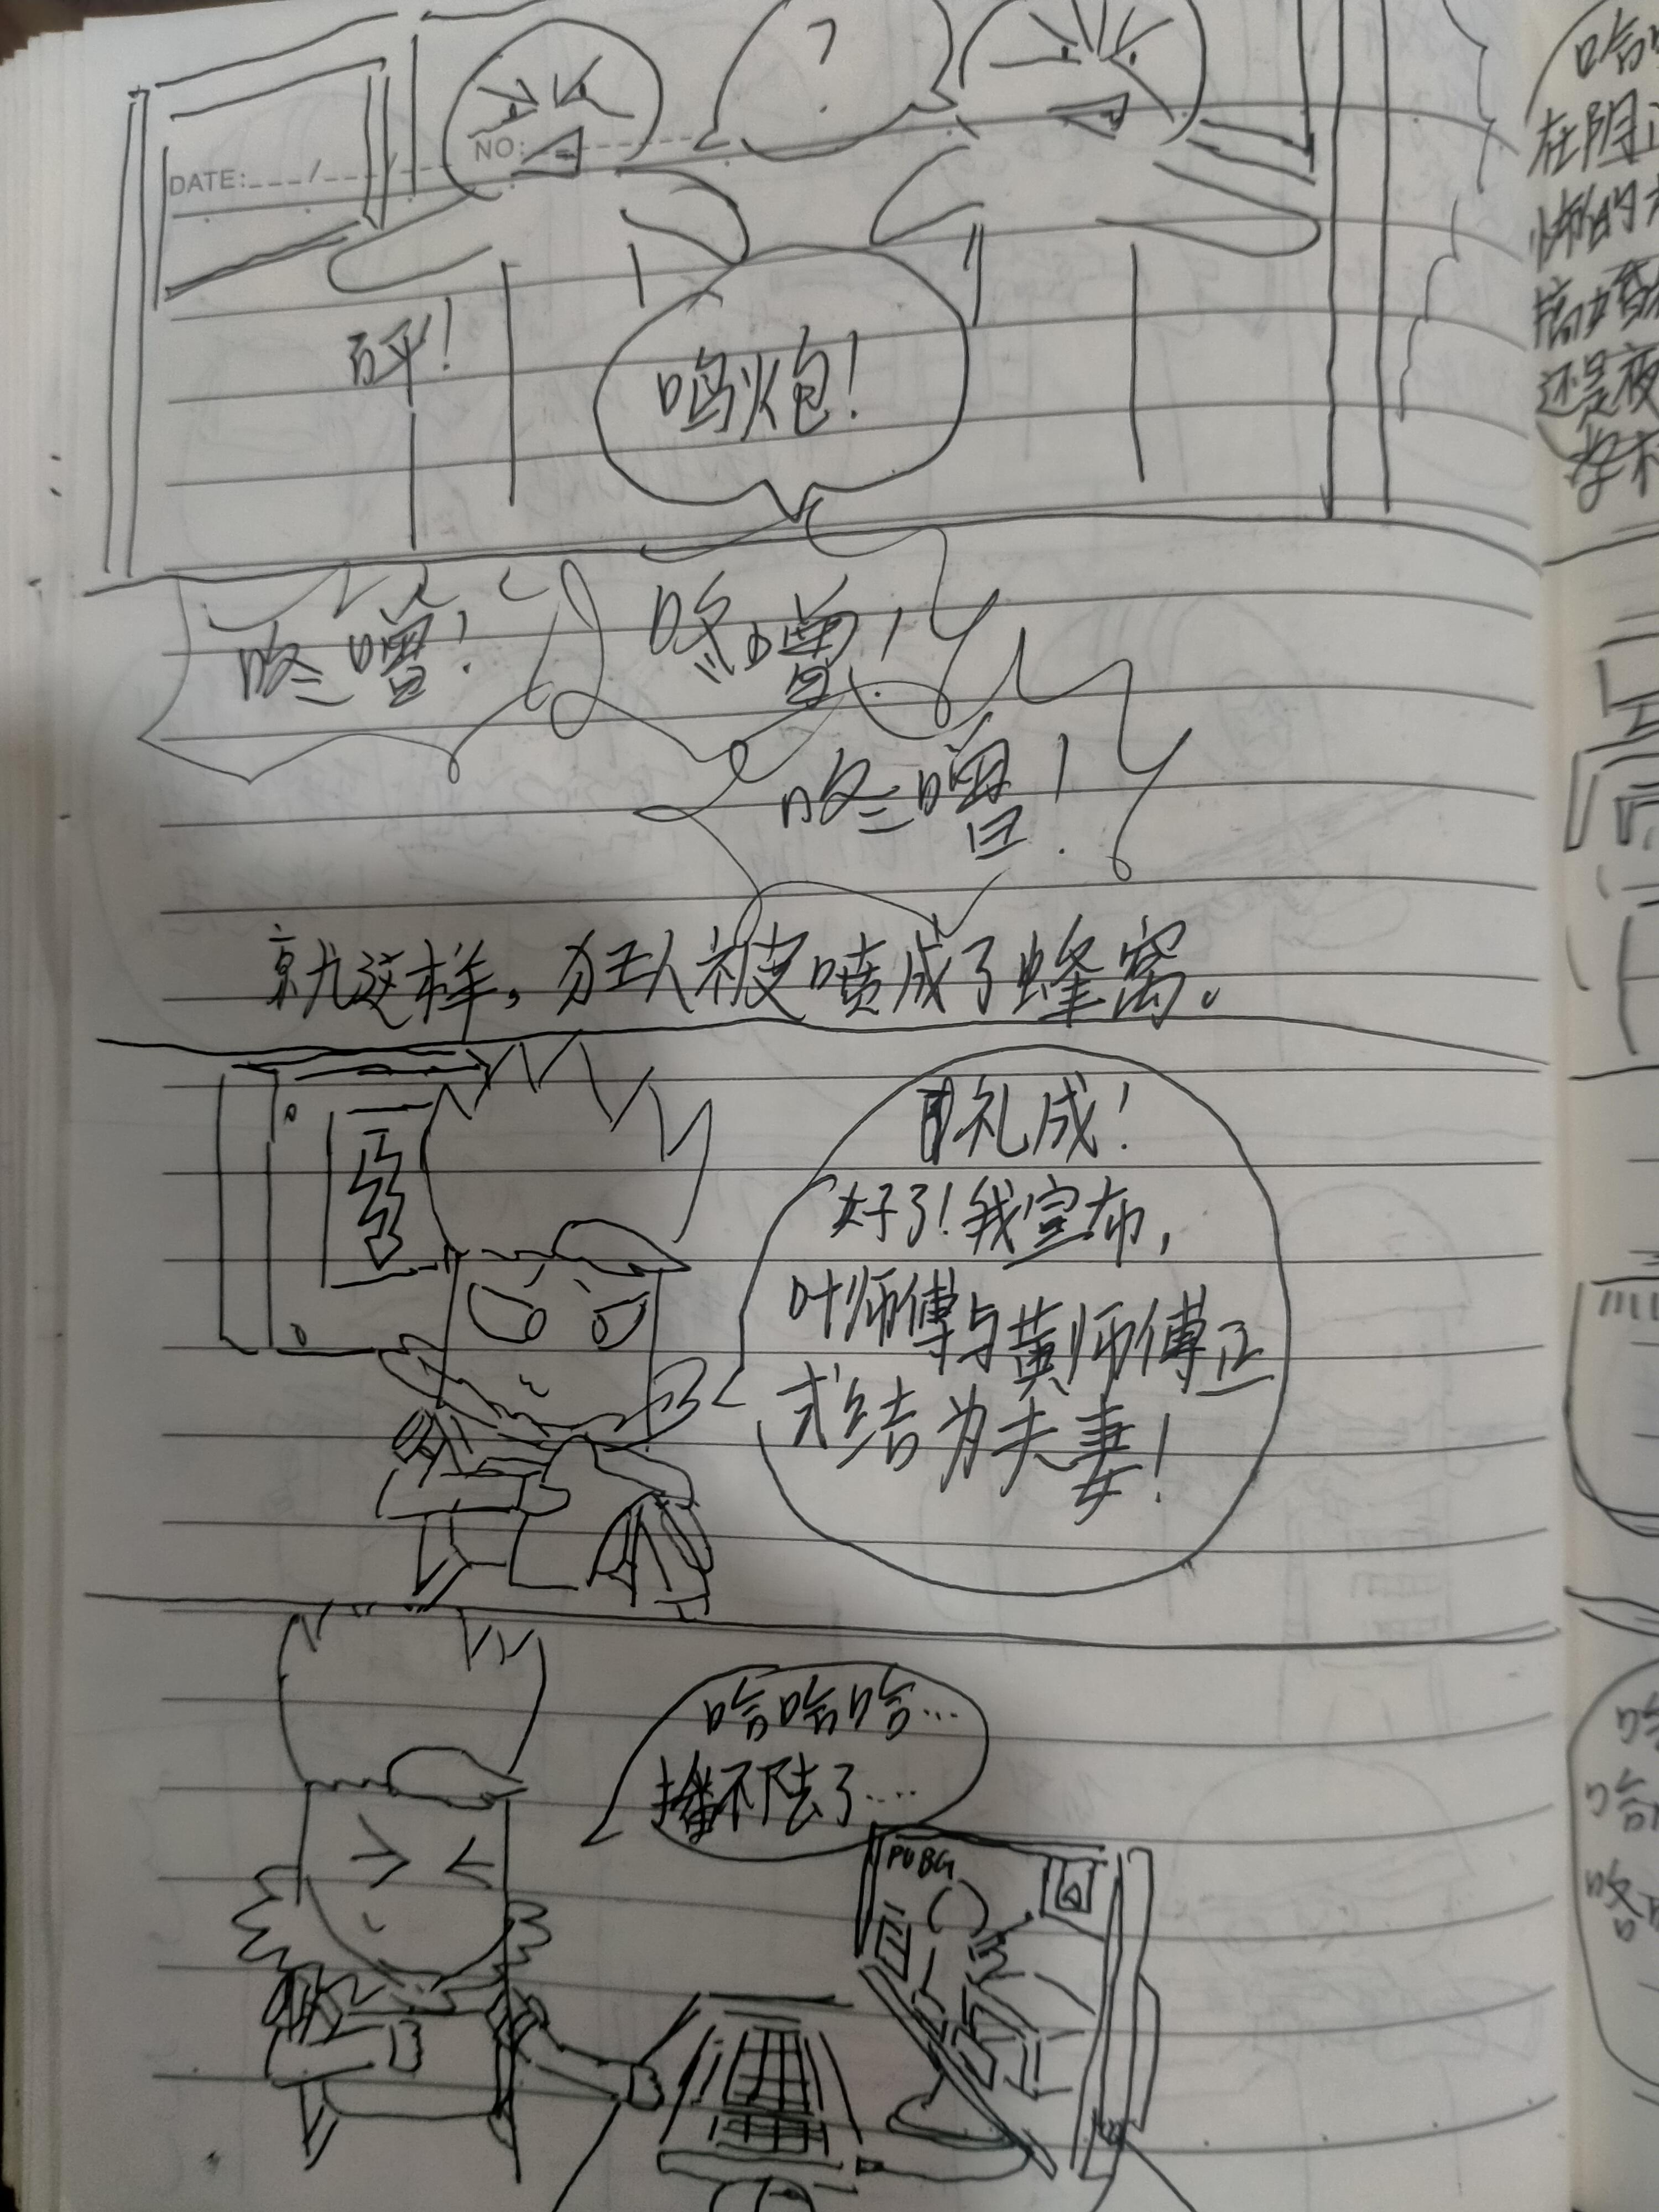 DATE:___/___/ NO:
?
砰!
鸣炮!
咚噌!
咚噌!
咚噌!
就这样，狂人被喷成了蜂窝。
礼成!
好了!我宣布,
叶师傅与黄师傅正
式结为夫妻!
哈哈哈…
播不下去了….
PUBG
在阴
还是夜